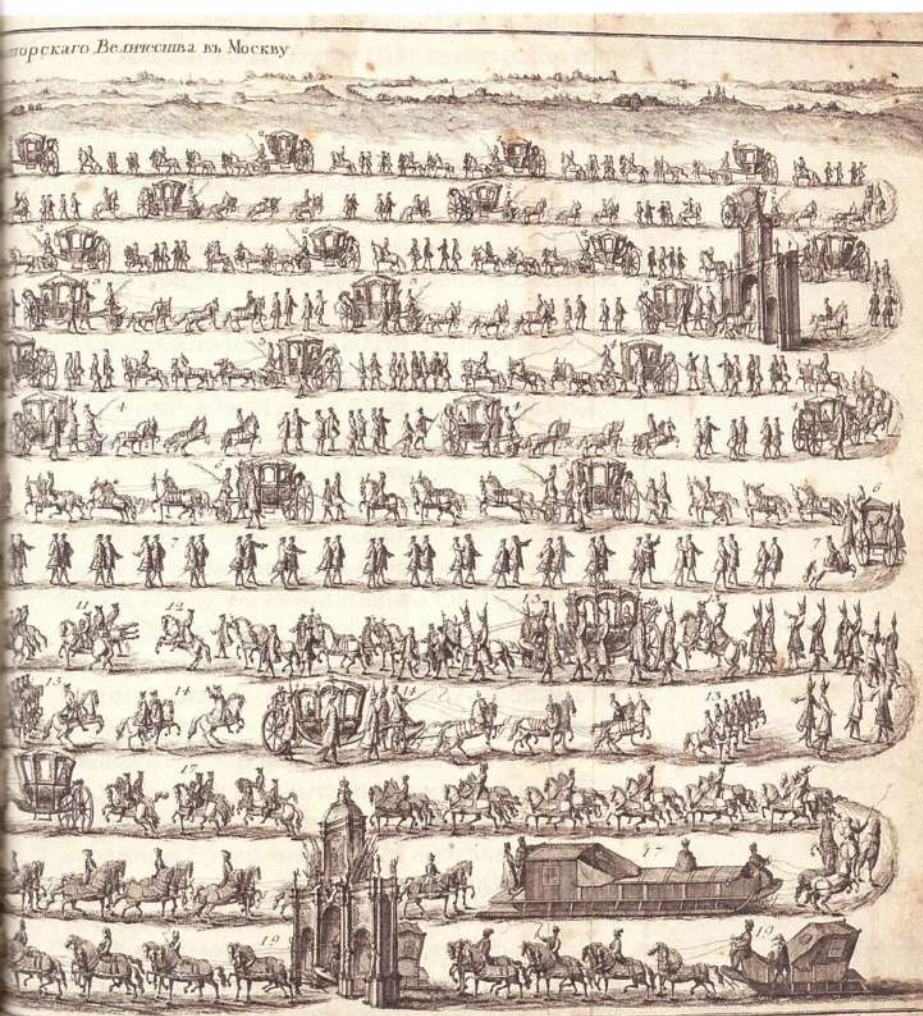 торскаго Величества въ Москву.
3 3 3
4 4
6
7 7
11 12 13
13 14 14 13
17
17
19 19